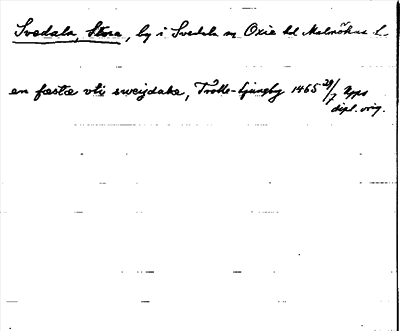 Svedala, Stora, by i Svedala sn Oxie hd Malmöhus l.
en fæstæ vti sweydale, Trolle-Ljungby 1465 29/7 Upps
dipl. orig.